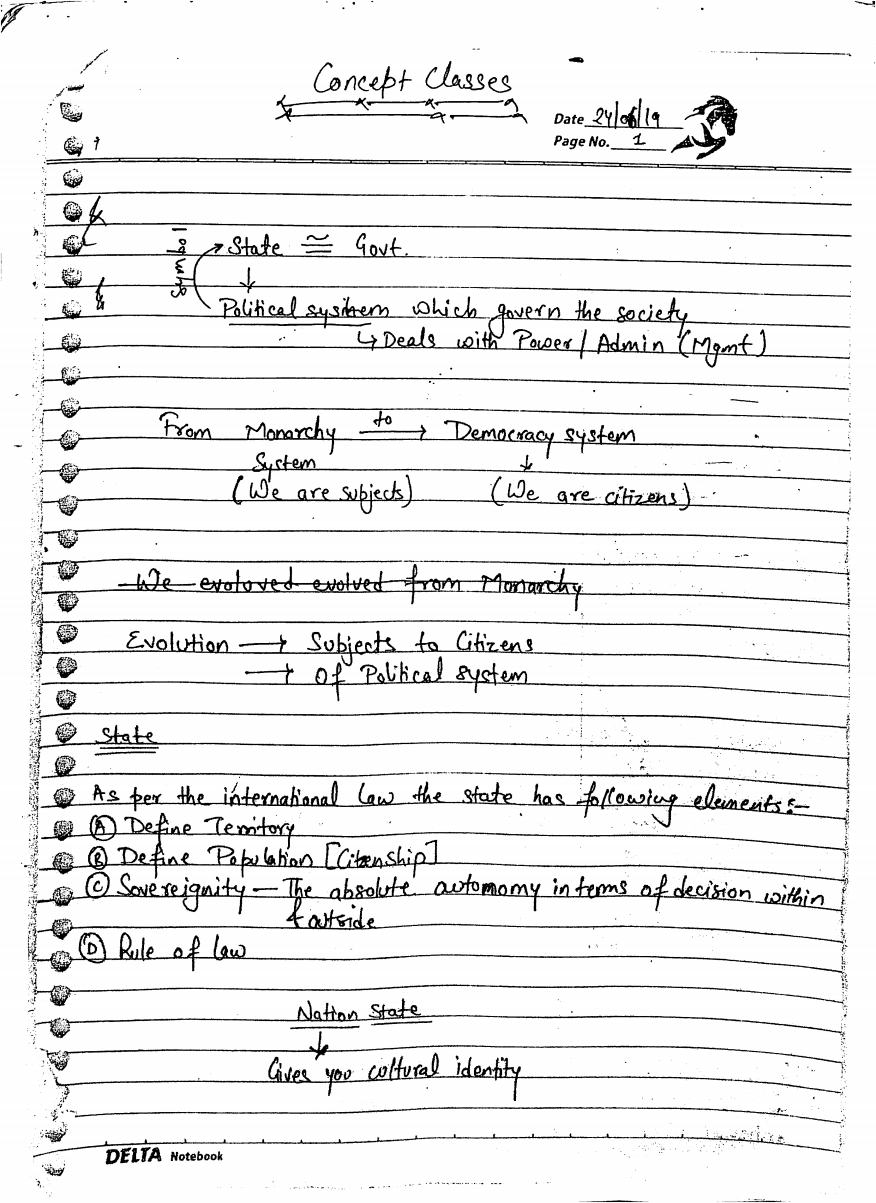 Concept Classes
Date 24/06/19
Page No. 1
State ≅ Govt.
↓
Political system which govern the society
↳ Deals with Power / Admin (Mgmt)
From Monarchy to → Democracy system
System ↓
(We are subjects) (We are citizens)
We evoloved evolved from Monarchy
Evolution → Subjects to Citizens
→ Of Political system
State
As per the international law the state has following elements:-
(A) Define Territory
(B) Define Population [Citizenship]
(C) Sovereignity – The absolute automomy in terms of decision within
& outside
(D) Rule of law
Nation State
↓
Gives you cultural identity
DELTA Notebook